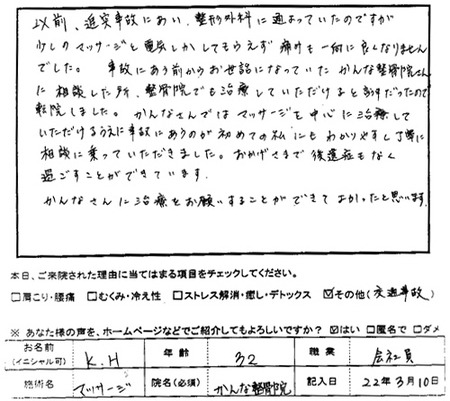 以前、追突事故にあい、整形外科に通よっていたのですが
少しのマッサージと電気しかしてもらえず痛みも一向に良くなりません
でした。 事故にあう前からお世話になっていた かんな整骨院さん
に相談した所、整骨院でも治療していただけると話だったので
転院しました。かんなさんではマッサージを中心に治療して
いただけるうえに事故にあうのが初めての私にもわかりやすく丁寧に
相談に乗っていただきました。おかげさまで後遺症もなく
過ごすことができています。
かんなさんに治療をお願いすることができてよかったと思います。
本日、ご来院された理由に当てはまる項目をチェックしてください。
□肩こり・腰痛 □むくみ・冷え性 □ストレス解消・癒し・デトックス ☑その他(交通事故)
※ あなた様の声を、ホームページなどでご紹介してもよろしいですか？ ☑はい □匿名で □ダメ
お名前(イニシャル可) K.H 年齢 32 職業 会社員
施術名 マッサージ 院名(必須) かんな整骨院 記入日 22年3月10日